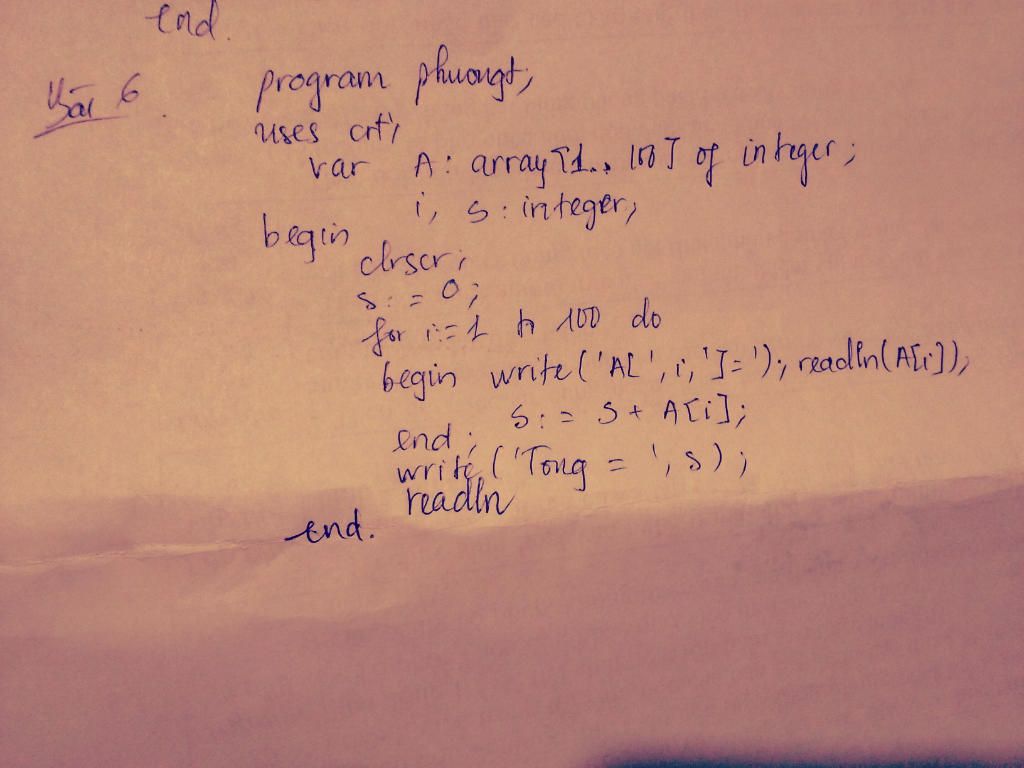 end.
Bài 6
program phuongt;
uses crt;
var A: array[1..100] of integer;
i, s: integer;
begin
clrscr;
s:=0;
for i:=1 to 100 do
begin write('A[',i,']='); readln(A[i]);
s:= s+A[i];
end;
write('Tong = ',s);
readln
end.